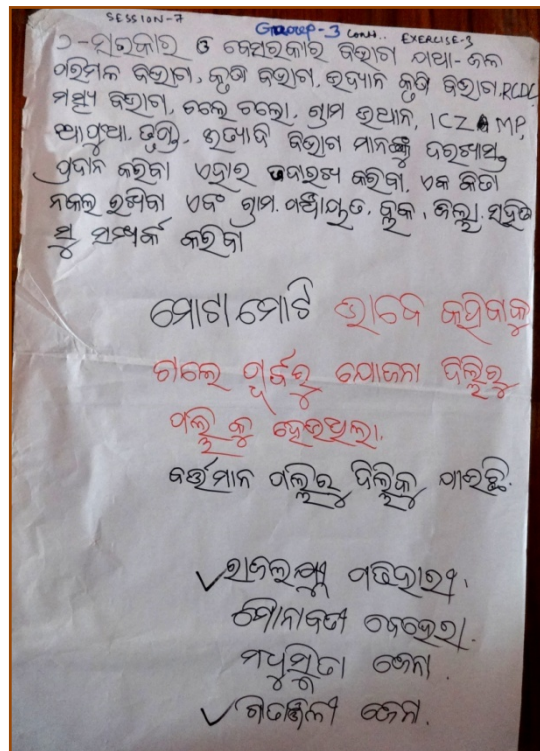 SESSION-7
GROUP-3 CONT.. EXERCISE-3
୨-ସରକାର ଓ ବେସରକାର ବିଭାଗ ଯଥା-ଜଳ
ପରିମଳ ବିଭାଗ, କୃଷି ବିଭାଗ, ଉଦ୍ୟାନ କୃଷି ବିଭାଗ, RCDC
ମତ୍ସ୍ୟ ବିଭାଗ, ଚଲେ ଚଲୋ, ଗ୍ରାମ ଉତ୍ଥାନ, ICZMP,
ଇତ୍ୟାଦି ବିଭାଗ ମାନଙ୍କୁ ଦରଖାସ୍ତ
ପ୍ରଦାନ କରିବା ଏହାର ତଦାରଖ କରିବା, ଏକ କିତା
ନକଲ ରଖିବା ଏବଂ ଗ୍ରାମ ପଞ୍ଚାୟତ, ବ୍ଲକ, ଜିଲ୍ଲା ସହିତ
ସୁ ସମ୍ପର୍କ କରିବା
ମୋଟା ମୋଟି ଭାବେ କହିବାକୁ
ଗଲେ ପୂର୍ବରୁ ଯୋଜନା ଦିଲ୍ଲିରୁ
ପଲ୍ଲୀ କୁ ହେଉଥିଲା.
ବର୍ତ୍ତମାନ ପଲ୍ଲିରୁ ଦିଲ୍ଲିକୁ ଯାଉଛି.
✓ରାଜଲକ୍ଷ୍ମୀ ପଢିହାରୀ.
ମୌନାବତୀ ବେହେରା.
ମଧୁସ୍ମିତା ଜେନା.
✓ଗୀତାଞ୍ଜଳୀ ଜେନା.